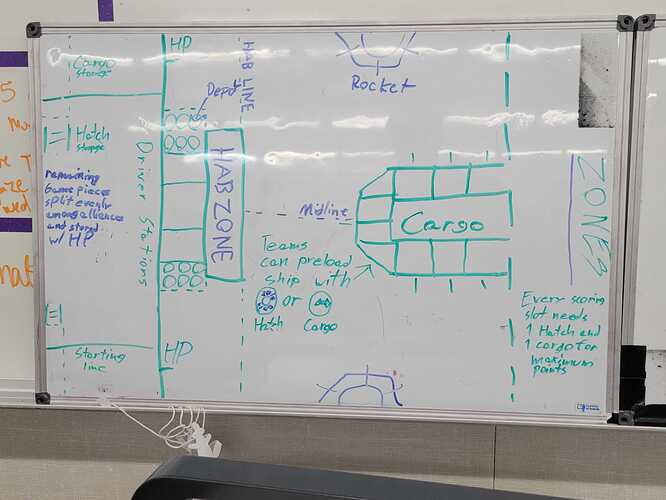 HP
Cargo
storage
Depot
HAB LINE
Rocket
5
Hatch
storage
Driver Stations
HAB ZONE
ZONES
remaining
Game pieces
split evenly
among alliances
and stored
w/ HP
Midline
Cargo
Teams
can preload
ship with
or
Hatch
Cargo
Every scoring
slot needs
1 Hatch and
1 cargo for
maximum
points
HP
Starting
line